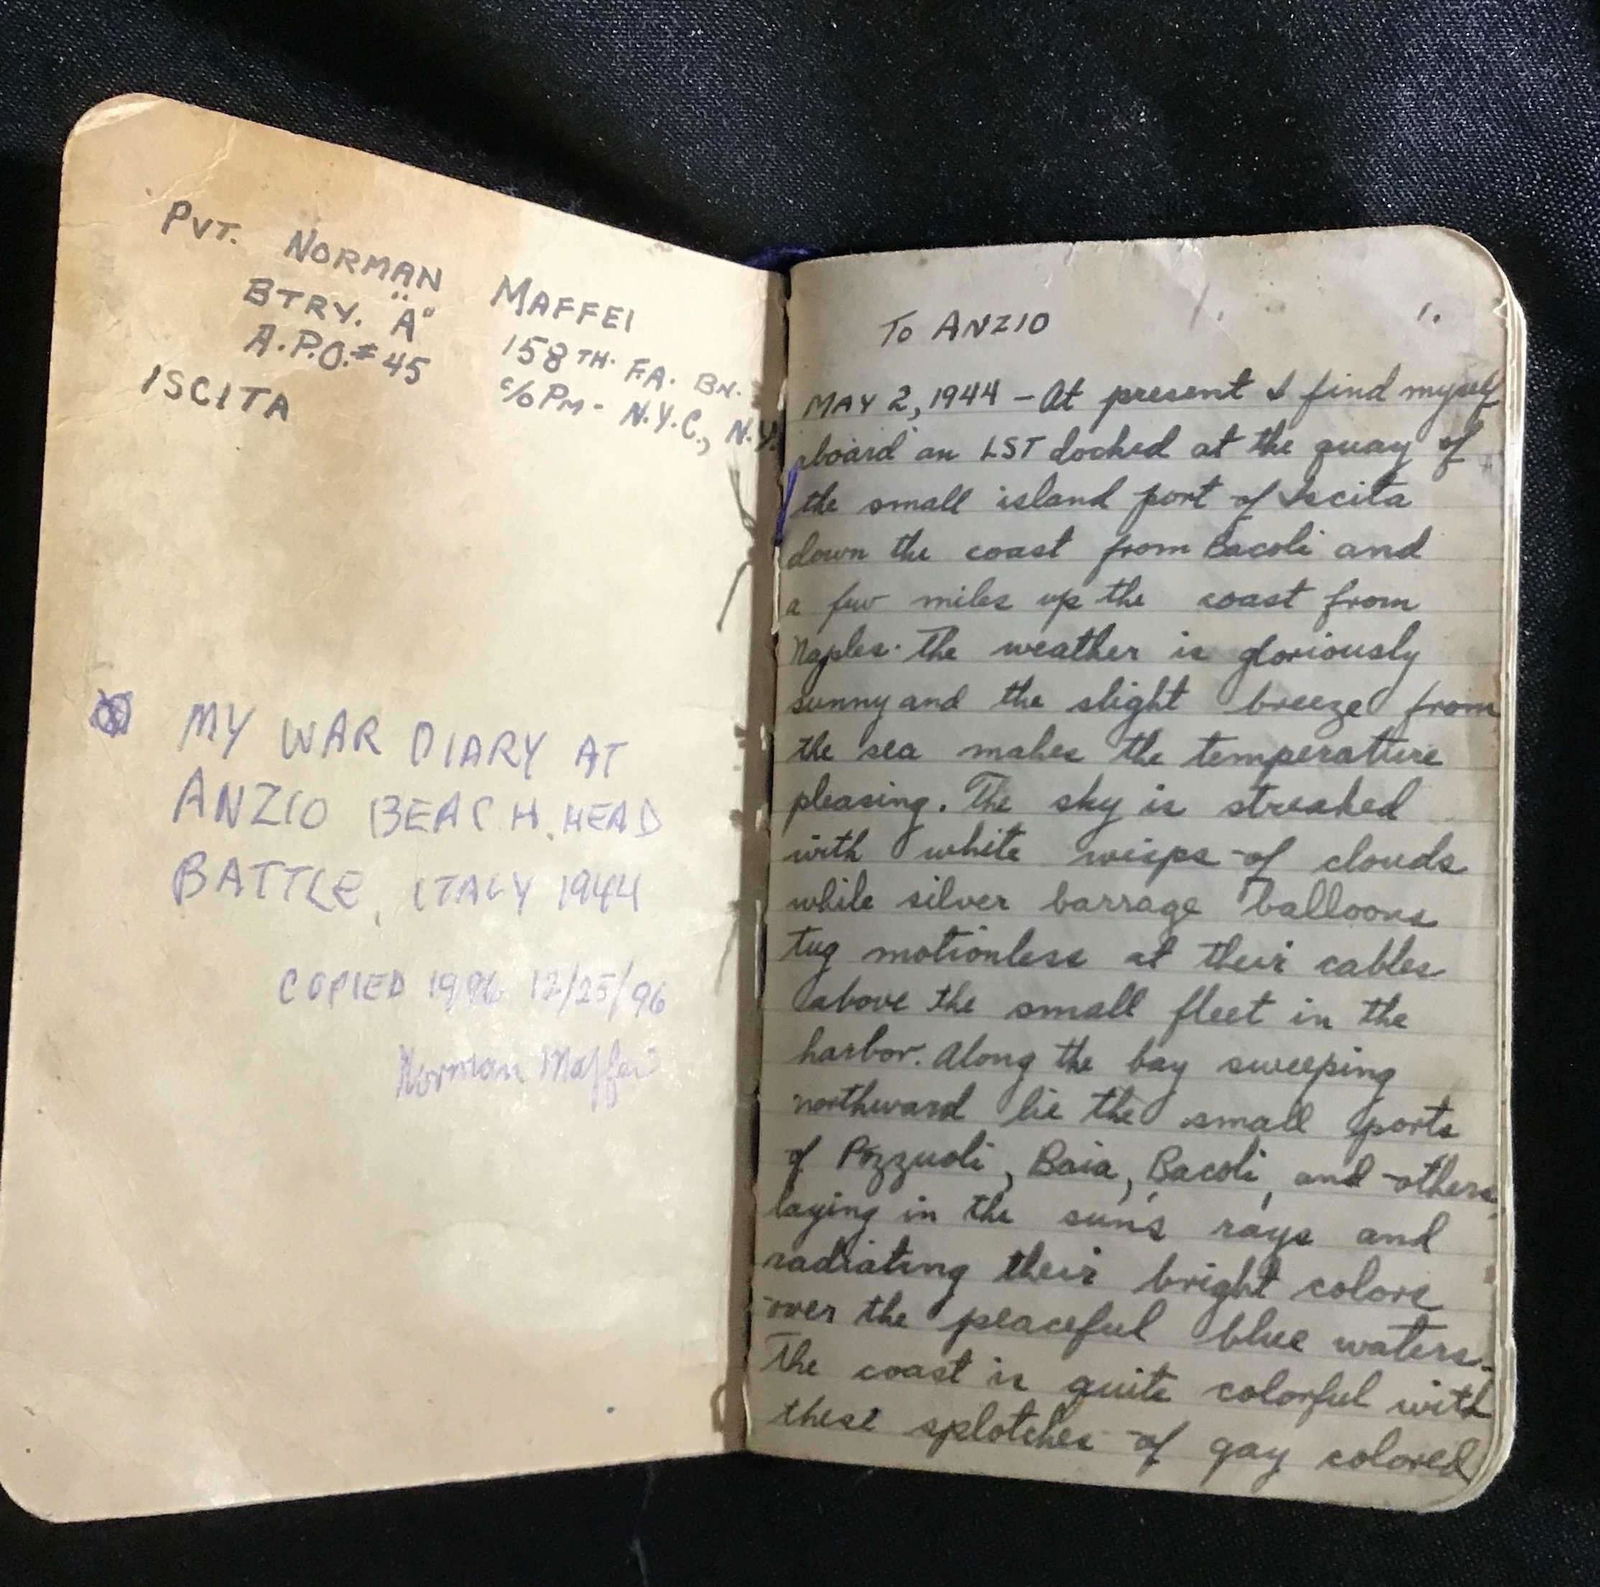 PVT. NORMAN MAFFEI
BTRY. "A" 158TH. FA. BN.
A.P.O. #45 c/o PM- N.Y.C., N.Y.
ISCITA
MY WAR DIARY AT
ANZIO BEACH.HEAD
BATTLE, ITALY 1944
COPIED 1996 12/25/96
Norman Maffei
To ANZIO 1. 1.
MAY 2, 1944 - At present I find myself
aboard an LST docked at the quay of
the small island port of Iscita
down the coast from Bacoli and
a few miles up the coast from
Naples. The weather is gloriously
sunny and the slight breeze from
the sea makes the temperature
pleasing. The sky is streaked
with white wisps of clouds
while silver barrage balloons
tug motionless at their cables
above the small fleet in the
harbor. Along the bay sweeping
northward lie the small ports
of Pozzuoli, Baia, Bacoli, and others,
laying in the sun's rays and
radiating their bright colors
over the peaceful blue waters.
The coast is quite colorful with
these splotches of gay colored